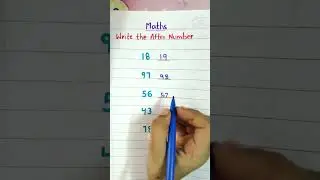 Maths
Write the After Number
18 19
97 98
56 57
43
78